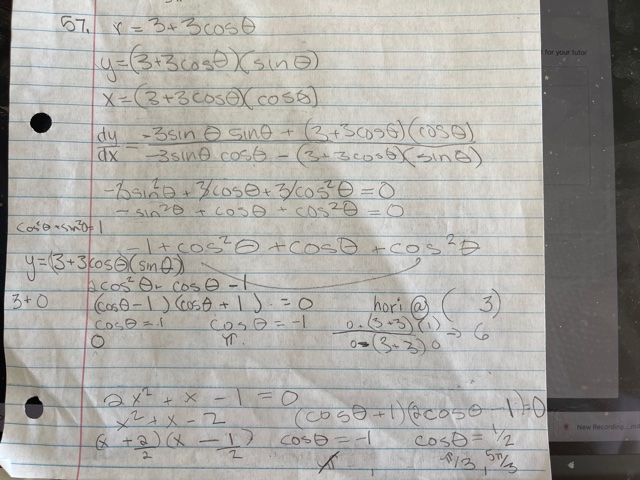 57. r = 3+3cosθ
for your tutor
y=(3+3cosθ)(sinθ)
x=(3+3cosθ)(cosθ)
dy/dx = -3sinθ sinθ + (3+3cosθ)(cosθ) / -3sinθ cosθ - (3+3cosθ)(sinθ)
-3sin²θ + 3cosθ + 3cos²θ = 0
-sin²θ + cosθ + cos²θ = 0
cos²θ+sin²θ=1
-1+cos²θ+cosθ+cos²θ
y=(3+3cosθ)(sinθ)
2cos²θ+cosθ-1
3+0
(cosθ-1)(cosθ+1) = 0
hori @ ( 3)
cosθ=1 cosθ=-1
0·(3+3)(1) / 0-(3+3)0 → 6
0 π
2x²+x-1=0
x²+x-2
(cosθ+1)(2cosθ-1)=0
(x+2/2)(x-1/2)
cosθ=-1 cosθ=1/2
π π/3, 5π/3
New Recording